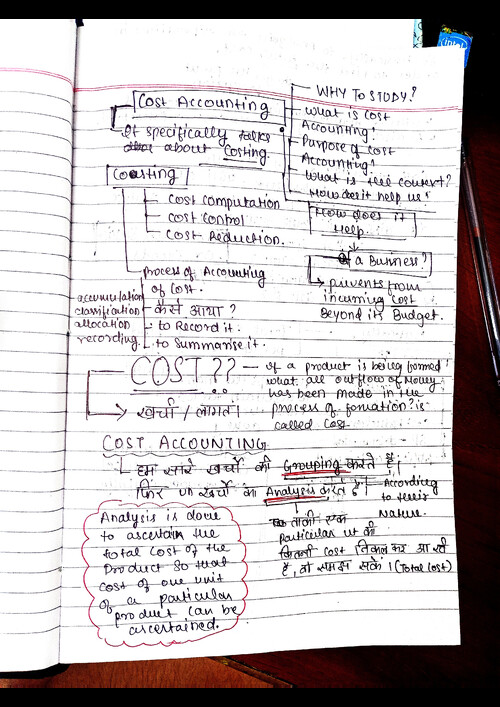 Cost Accounting
It specifically talks
about costing.
WHY TO STUDY?
What is Cost
Accounting!
Purpose of Cost
Accounting!
What is the context?
How does it help us!
Costing
Cost Computation
Cost Control
Cost Reduction.
How does it
Help.
a Business?
prevents from
incurring Cost
Beyond its Budget.
process of Accounting
of cost.
कैसे आया ?
to Record it.
to Summarise it.
accumulation
classification
allocation
recording
COST ??
खर्चा / लागत।
If a product is being formed
what all outflow of Money
has been made in the
process of formation is
called Cost
COST ACCOUNTING
हम सारे खर्चों की Grouping करते हैं।
फिर उन खर्चों का Analysis करते हैं।
According
to their
Nature.
ताकी एक
particular
कितनी cost निकल कर आ रही
है, वो समझ सके। (Total Cost)
Analysis is done
to ascertain the
total cost of the
Product so that
cost of one unit
of a particular
product can be
ascertained.